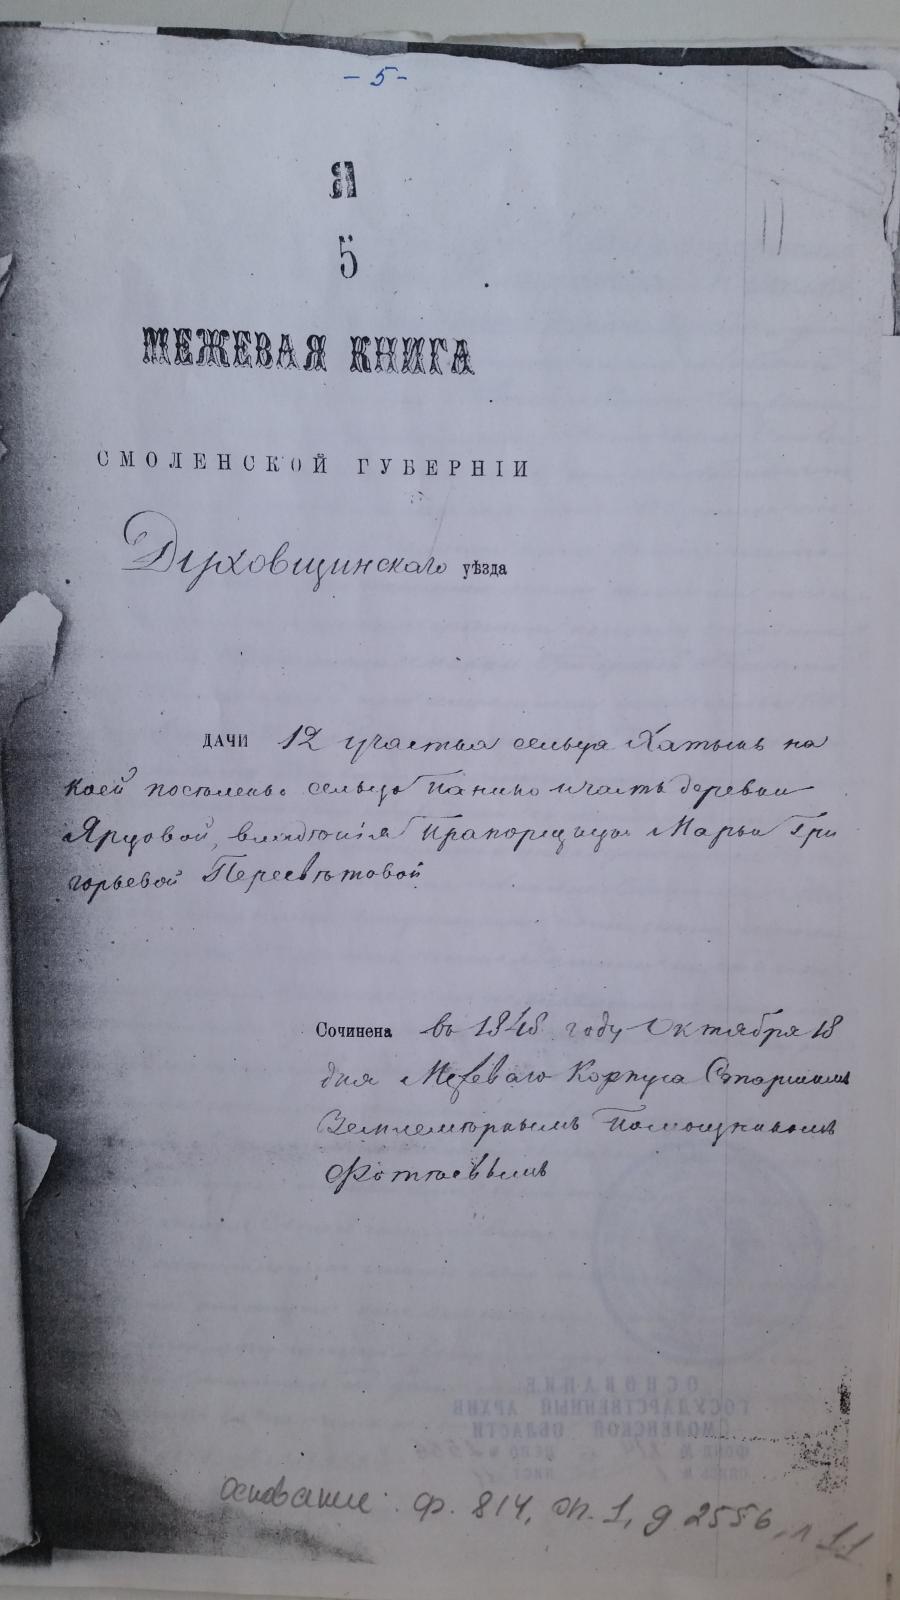 - 5 -
Я
5
МЕЖЕВАЯ КНИГА
СМОЛЕНСКОЙ ГУБЕРНІИ
Духовщинскаго уѣзда
ДАЧИ 12 участка сельца Хатынь на
коей поселены сельцо Панино и часть деревни
Ярцовой, владѣнія Прапорщицы Марьи Гри
горьевой Пересвѣтовой
Сочинена въ 1848 году Октября 18
дня Межеваго Корпуса Старшимъ
Землемѣрнымъ Помощникомъ
ОСНОВАНИЕ
ГОСУДАРСТВЕННЫЙ АРХИВ
СМОЛЕНСКОЙ ОБЛАСТИ
основание: ф. 814, оп. 1, д 2556, л 11